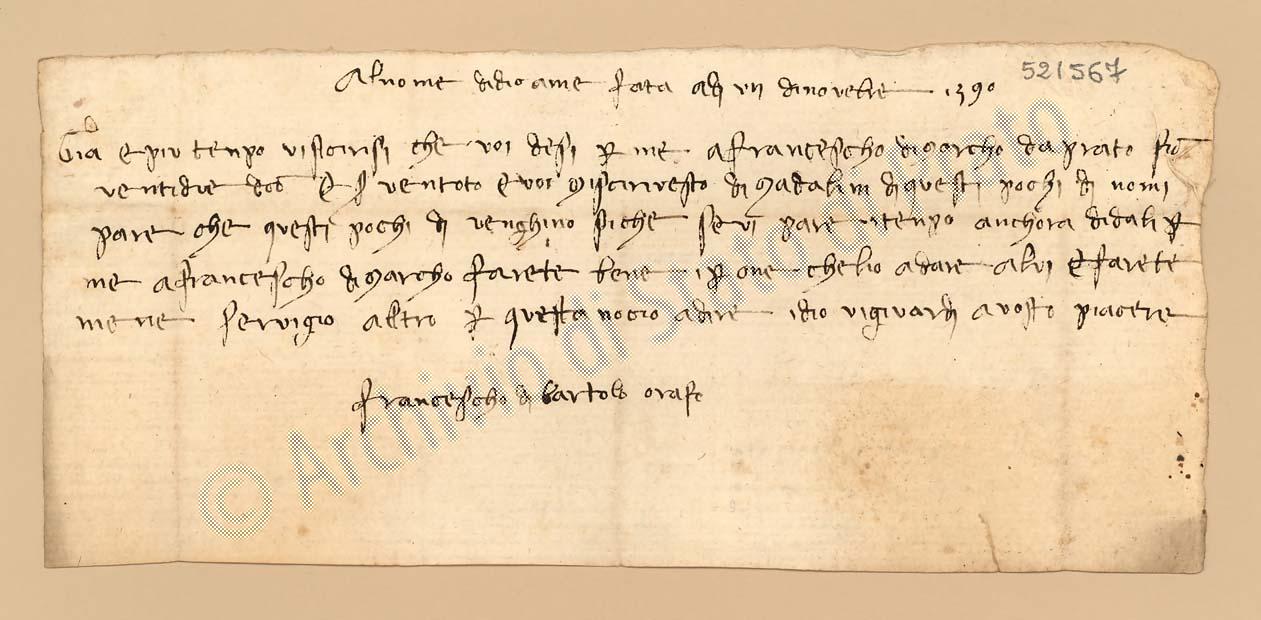 Al nome di dio ame fata adi vii di novebre 1390
521567
Gia e piu tenpo vi scrisi che voi desi per me a francescho di marcho da prato fio
ventidue e s ventoto e voi mi scrivesto di madalivi di questi pochi di nomi
pare che questi pochi di venghino siche se vi pare tenpo anchora di dali per
me a francescho di marcho farete bene i per one chelio a dare a lui e farete
mene servigio altro per questa nocio a dire idio vi givardi a vosto piacere
francescho di bartolo orafo
© Archivio di Stato di Prato